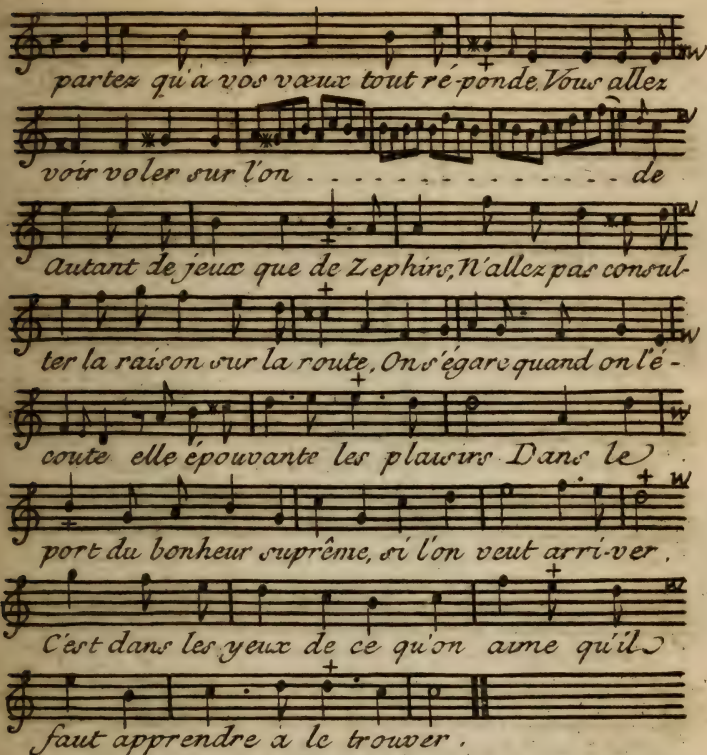 partez qu'à vos vœux tout ré-ponde, Vous allez
voir voler sur l'on . . . . . . . . . . . . . . . . de
Autant de jeux que de Zephirs, N'allez pas consul-
ter la raison sur la route, On s'égare quand on l'é-
coute elle épouvante les plaisirs Dans le
port du bonheur suprême, si l'on veut arri-ver.
C'est dans les yeux de ce qu'on aime qu'il
faut apprendre à le trouver.